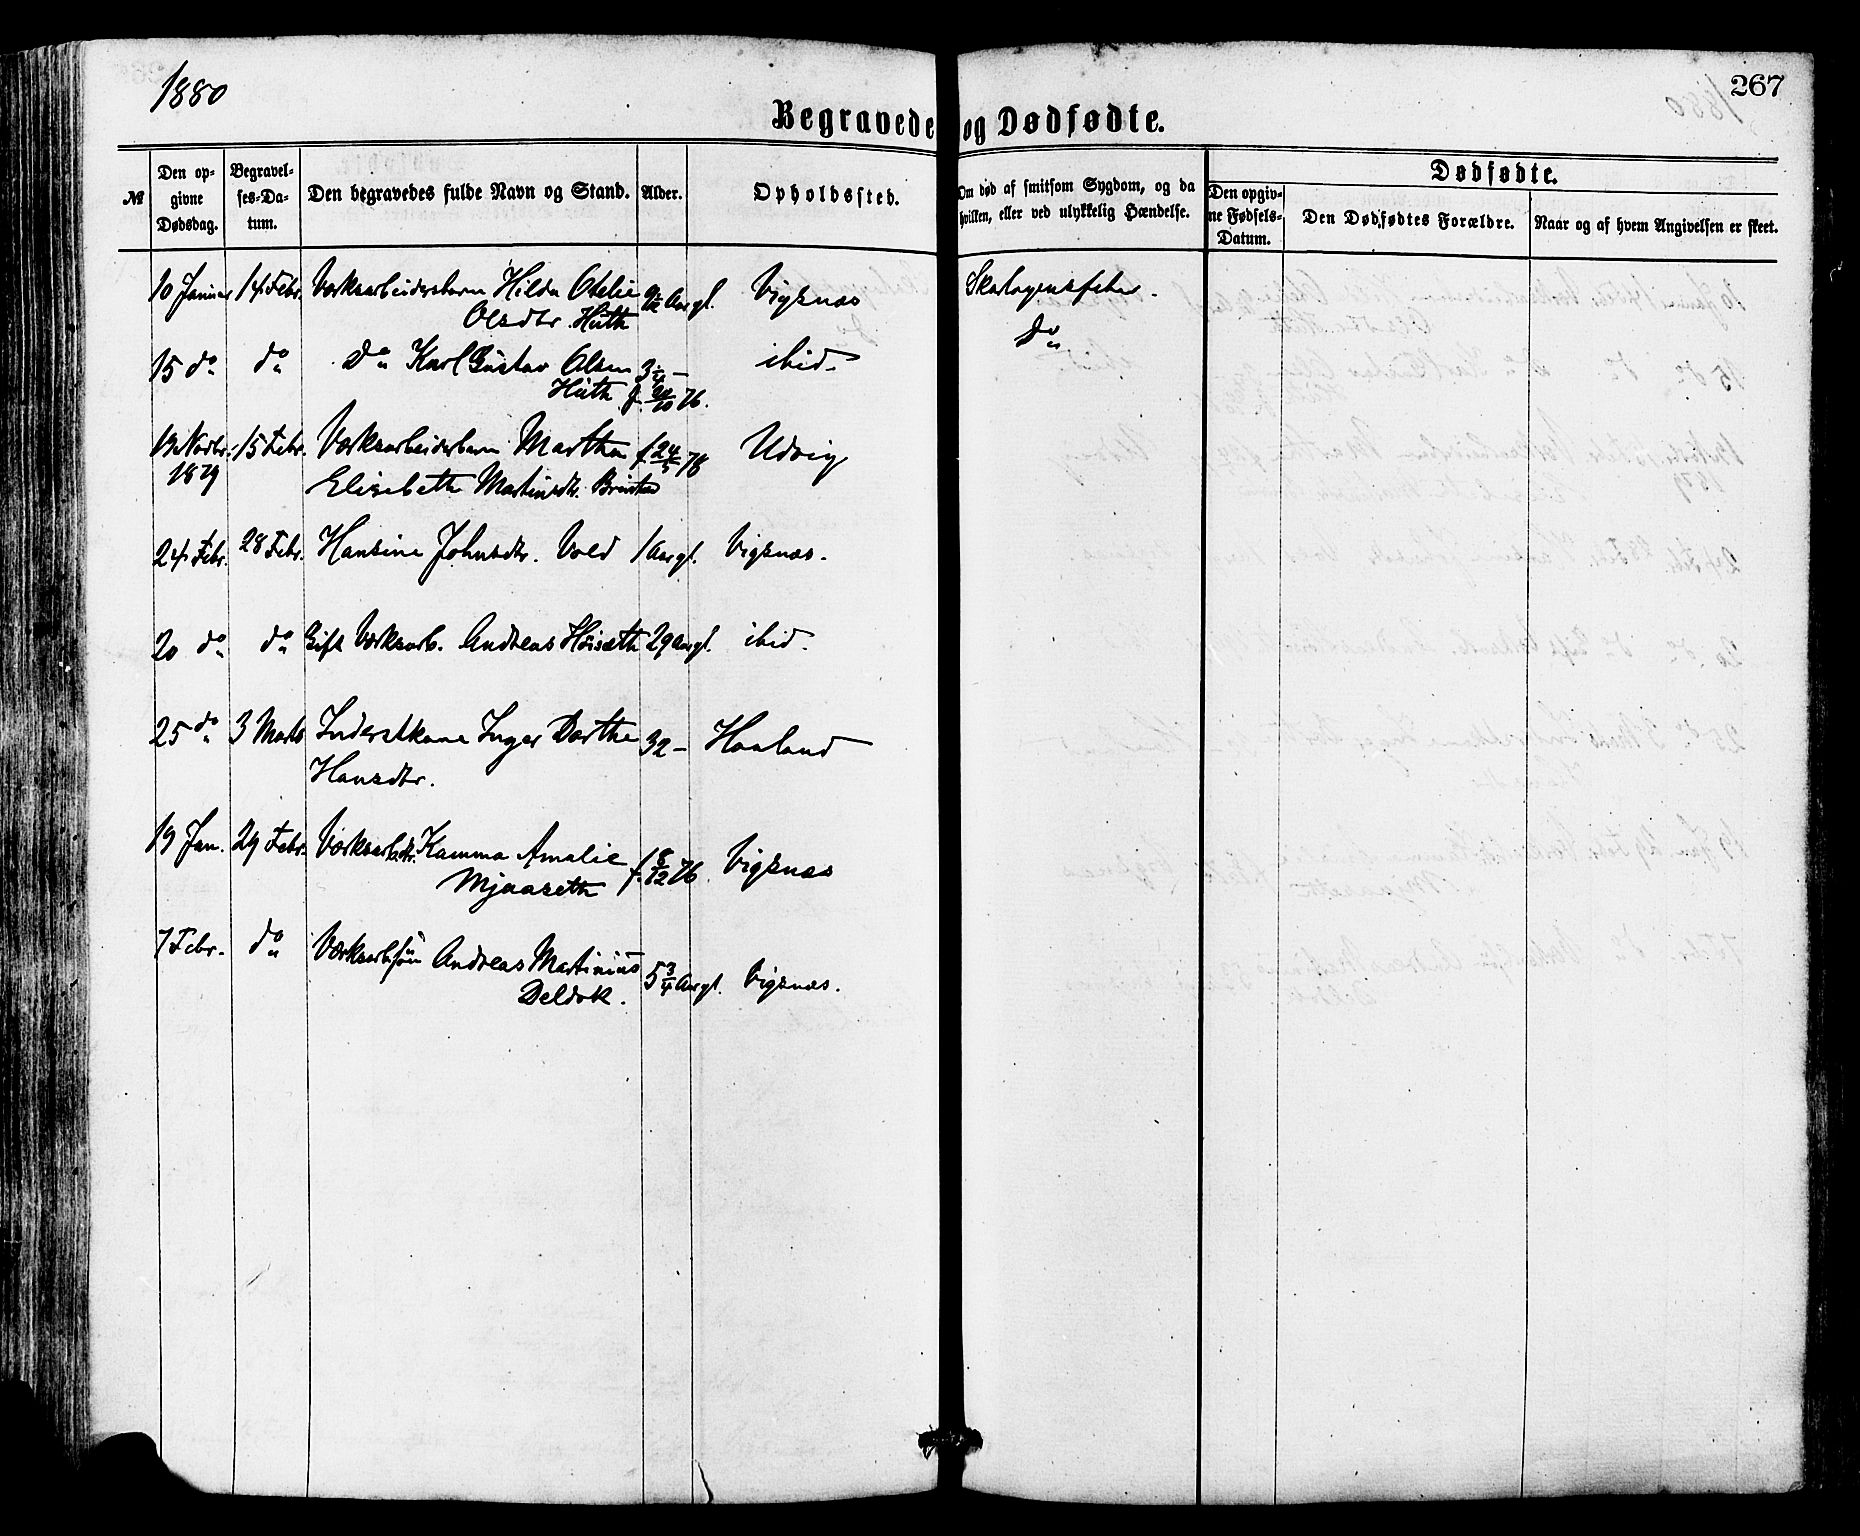 1880
267
Begravede og Dødfødte.
№
Den opgivne Dødsdag.
Begravelses-Datum.
Den begravedes fulde Navn og Stand.
Alder.
Opholdssted.
Om død af smitsom Sygdom, og da hvilken, eller ved ulykkelig Hændelse.
Dødfødte.
Den opgivne Fødsels-Datum.
Den Dødfødtes Forældre.
Naar og af hvem Angivelsen er skeet.
10 Januar 14 Febr. Værksarbeidersbarn Hilda Otelie 9/12 Aar gl. Vigsnæs Skarlagensfeber.
Olsdtr. Huth
15 do do do Karl Gustav Olsen 3 1/4 - ibid. Do
Huth f. 20/10 76.
13 Novbr. 15 Febr. Værksarbeiderbarn Martha f. 24/5 78 Udvig
1879 Elisabeth Martinsdtr.
24 Febr. 28 Febr. Hansine Johnsdtr. Vold 1 Aar gl. Vigsnæs.
20 do do Gift Værksarb. Andreas Höisæth 29 Aar gl. ibid.
25 do 3 Marts Inderstkone Inger Dorthe 32 - Haaland
Hansdtr.
19 Jan. 29 Febr. Kamma Amalie f. 8/12 76. Vigsnæs
Mjaaseth
7 Febr. do Værksarbsøn Andreas Martinius 5 3/4 Aar gl. Vigsnæs.
Deldok.